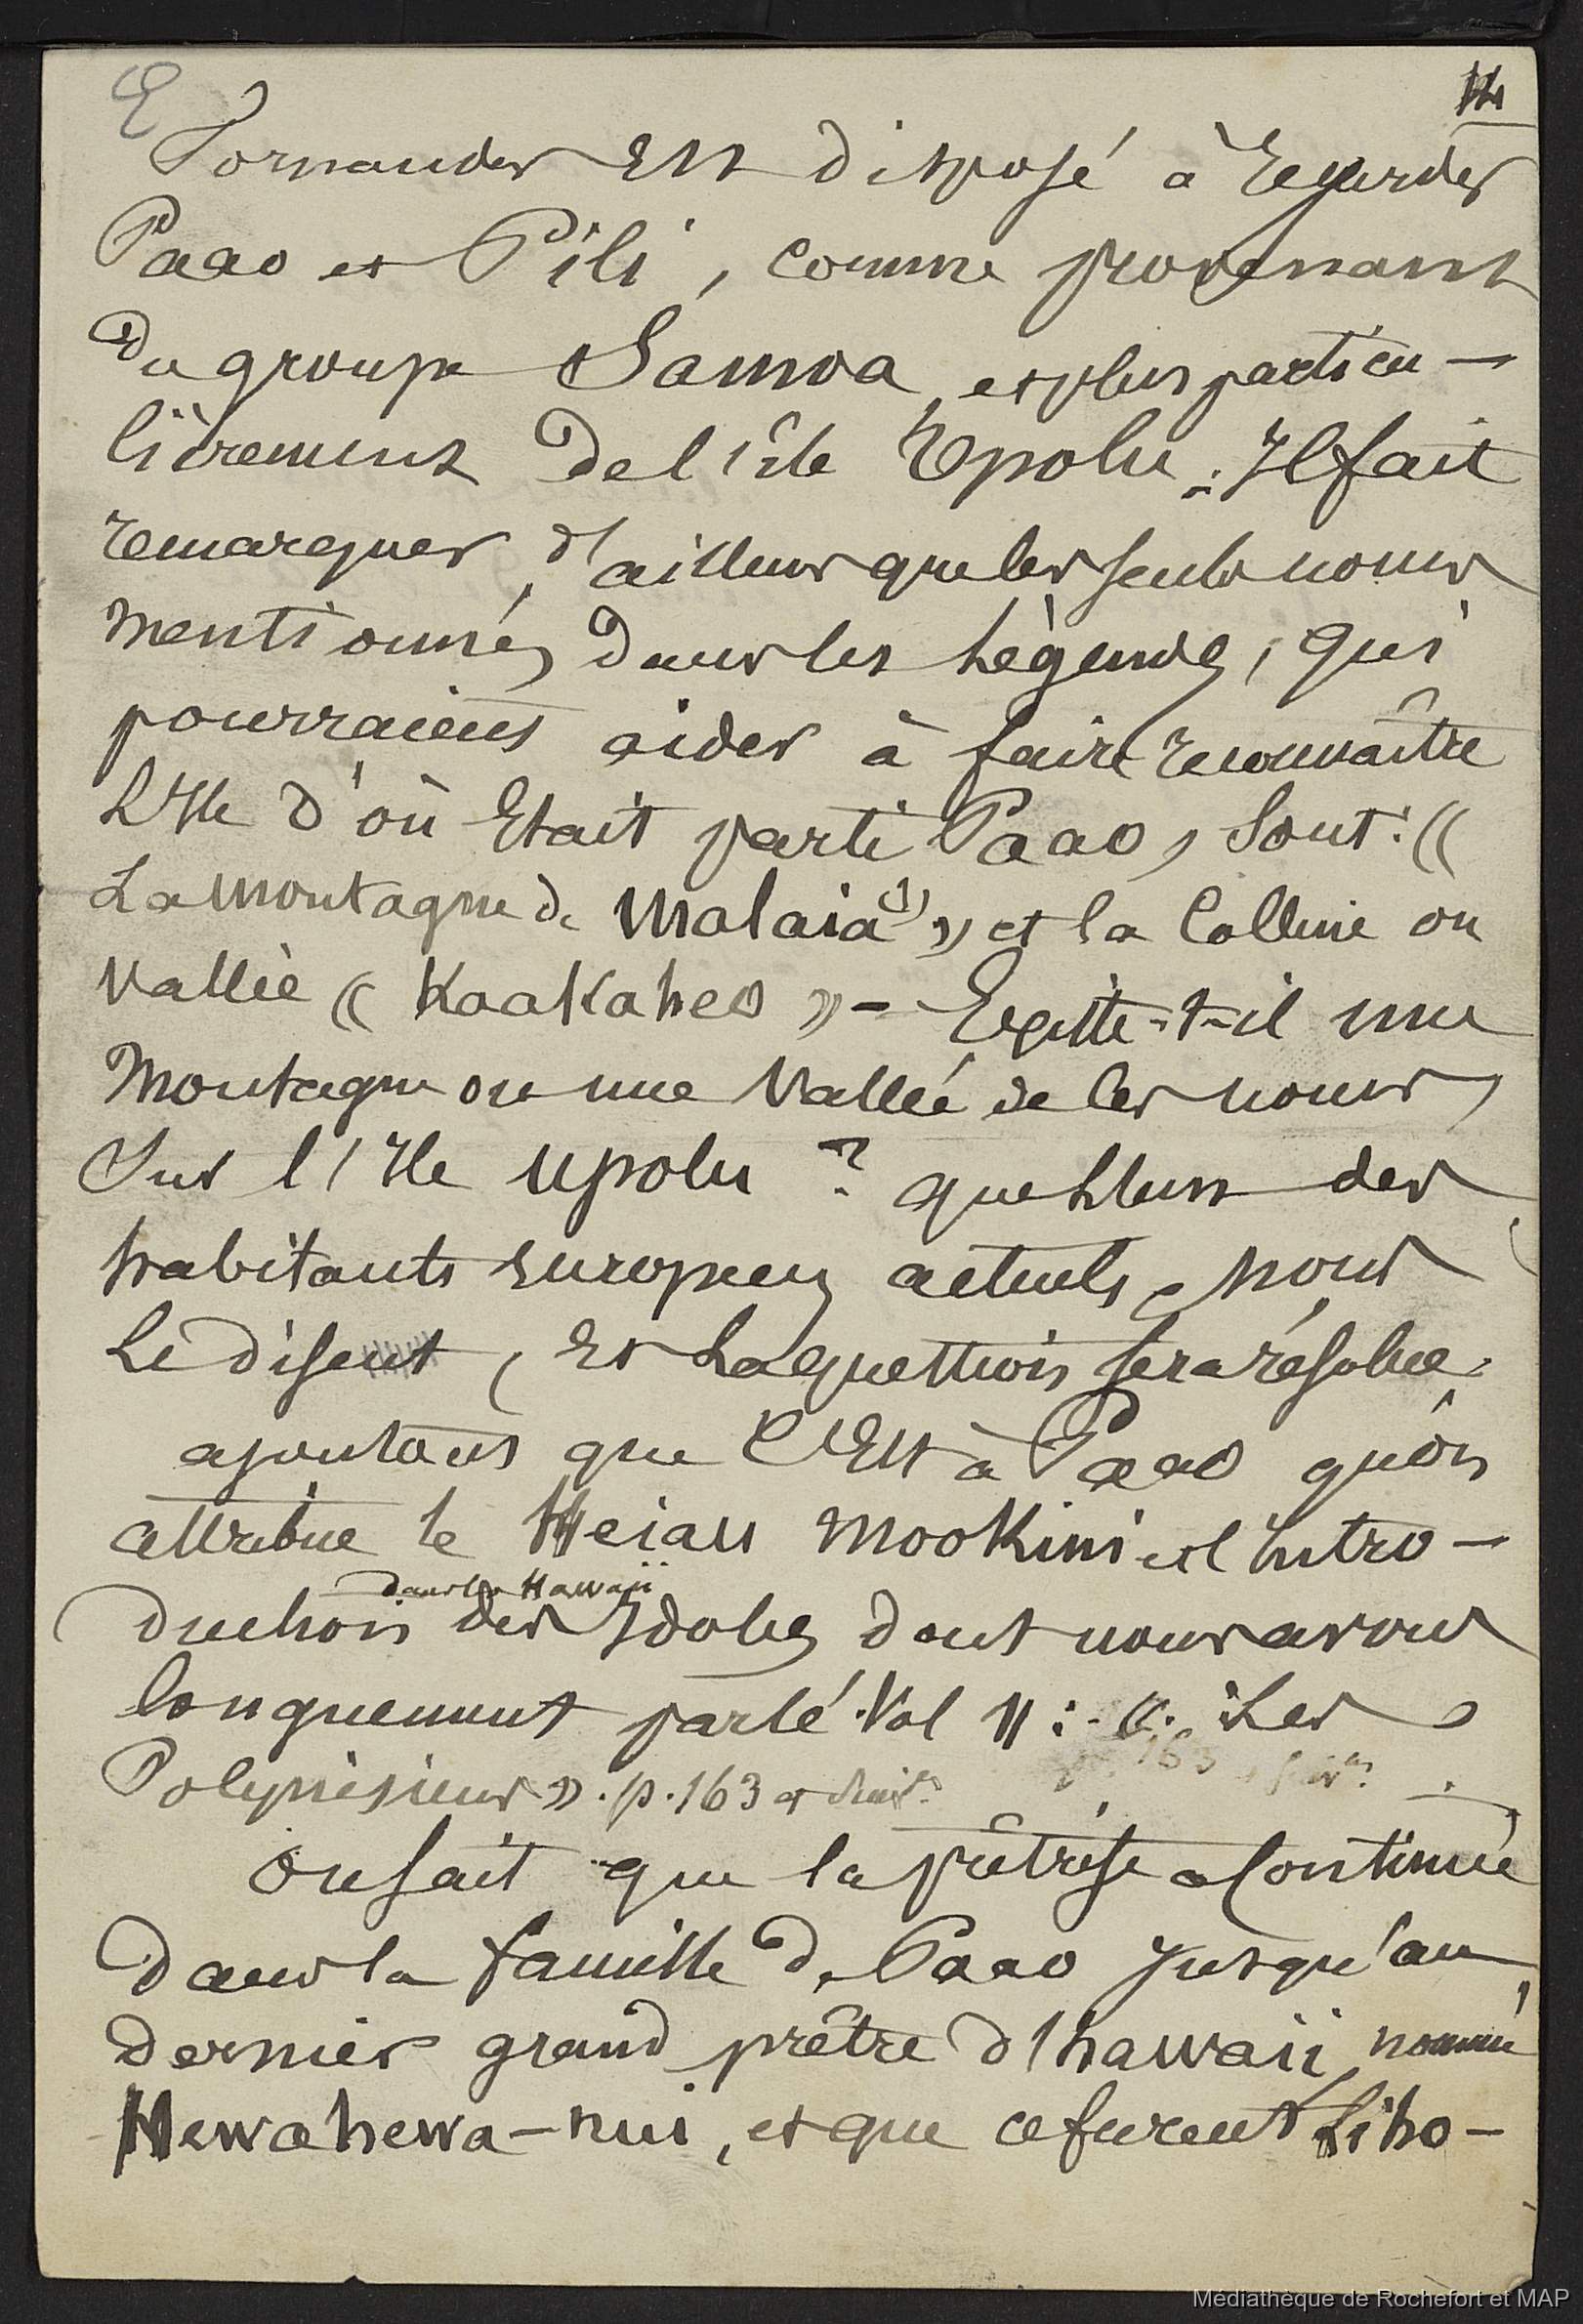 E
14
Fornander est disposé à regarder
Paao et Pili, comme provenant
du groupe Samoa, et plus particu-
lièrement de l'île Upolu. Il fait
remarquer, d'ailleurs que les seuls noms
mentionnés dans les légendes, qui
pourraient aider à faire reconnaître
L'Ile d'où Etait parti Paao, sont: «
La montagne de Malaia (1) » et la Colline ou
Vallée « Kaakaheo » - Existe-t-il une
Montagne ou une Vallée de ces noms,
Sur l'Ile Upolu ? que l'un des
habitants européens actuels, nous
le disent, et la question sera résolue.
ajoutons que C'Est à Paao qu'on
attribue le Heiau Mookini et l'Intro-
dans les Hawaii
duction des Idoles dont nous avons
longuement parlé. Vol II: « Les
Polynésiens ». p. 163 et suiv.
On sait que la prêtrise a continué
dans la famille de Paao jusqu'au
dernier grand prêtre d'hawaii, nommé
Hewahewa-nui, et que ce furent Liho-
Médiathèque de Rochefort et MAP